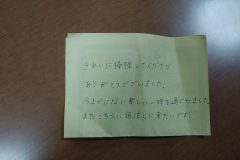 きれいに掃除してくださり
ありがとうございました。
今までにない楽しい一時を過ごせました
またこちらに宿泊しに来たいです!